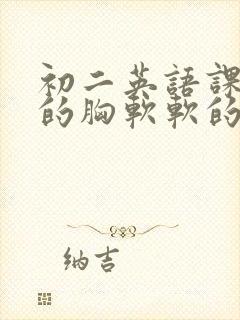 初二英語課
的胸軟軟的
纳吉